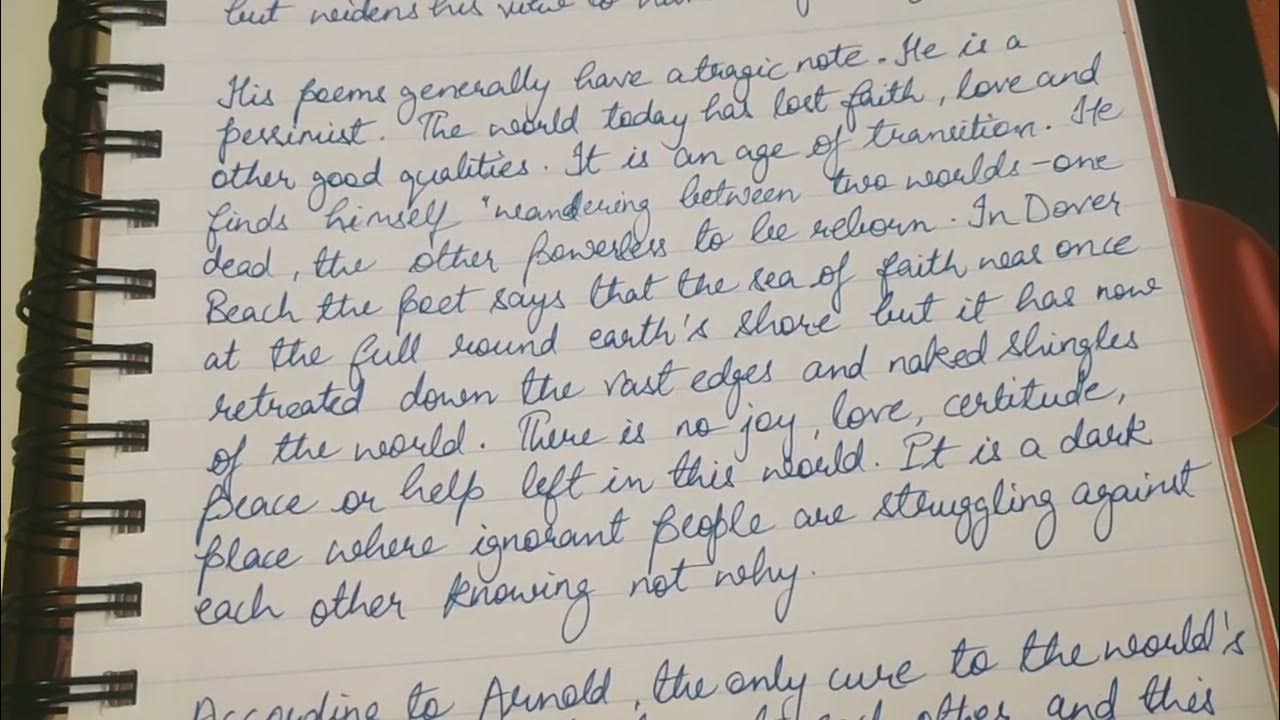 but widens his
His poems generally have a tragic note. He is a
pessimist. The world today has lost faith, love and
other good qualities. It is an age of transition. He
finds himself "wandering between two worlds - one
dead, the other powerless to be reborn. In Dover
Beach the poet says that the sea of faith was once
at the full round earth's shore but it has now
retreated down the vast edges and naked shingles
of the world. There is no joy, love, certitude,
peace or help left in this world. It is a dark
place where ignorant people are struggling against
each other knowing not why.
According to Arnold, the only cure to the world's
other and this